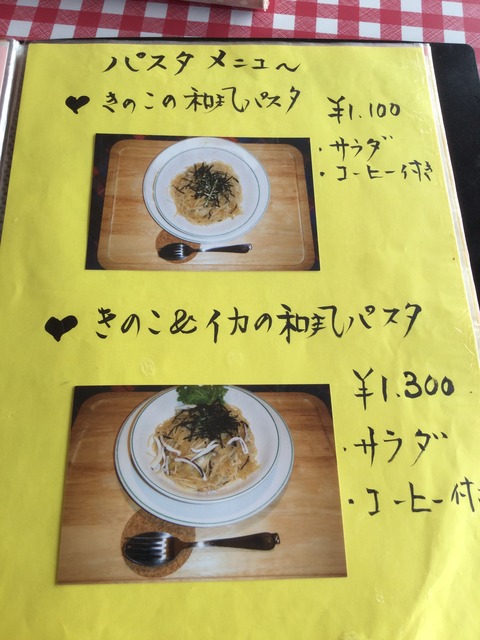 パスタ メニュ〜
♥ きのこの和風パスタ
¥1.100
・サラダ
・コーヒー付き
♥ きのこ&イカの和風パスタ
¥1.300
・サラダ
・コーヒー付き